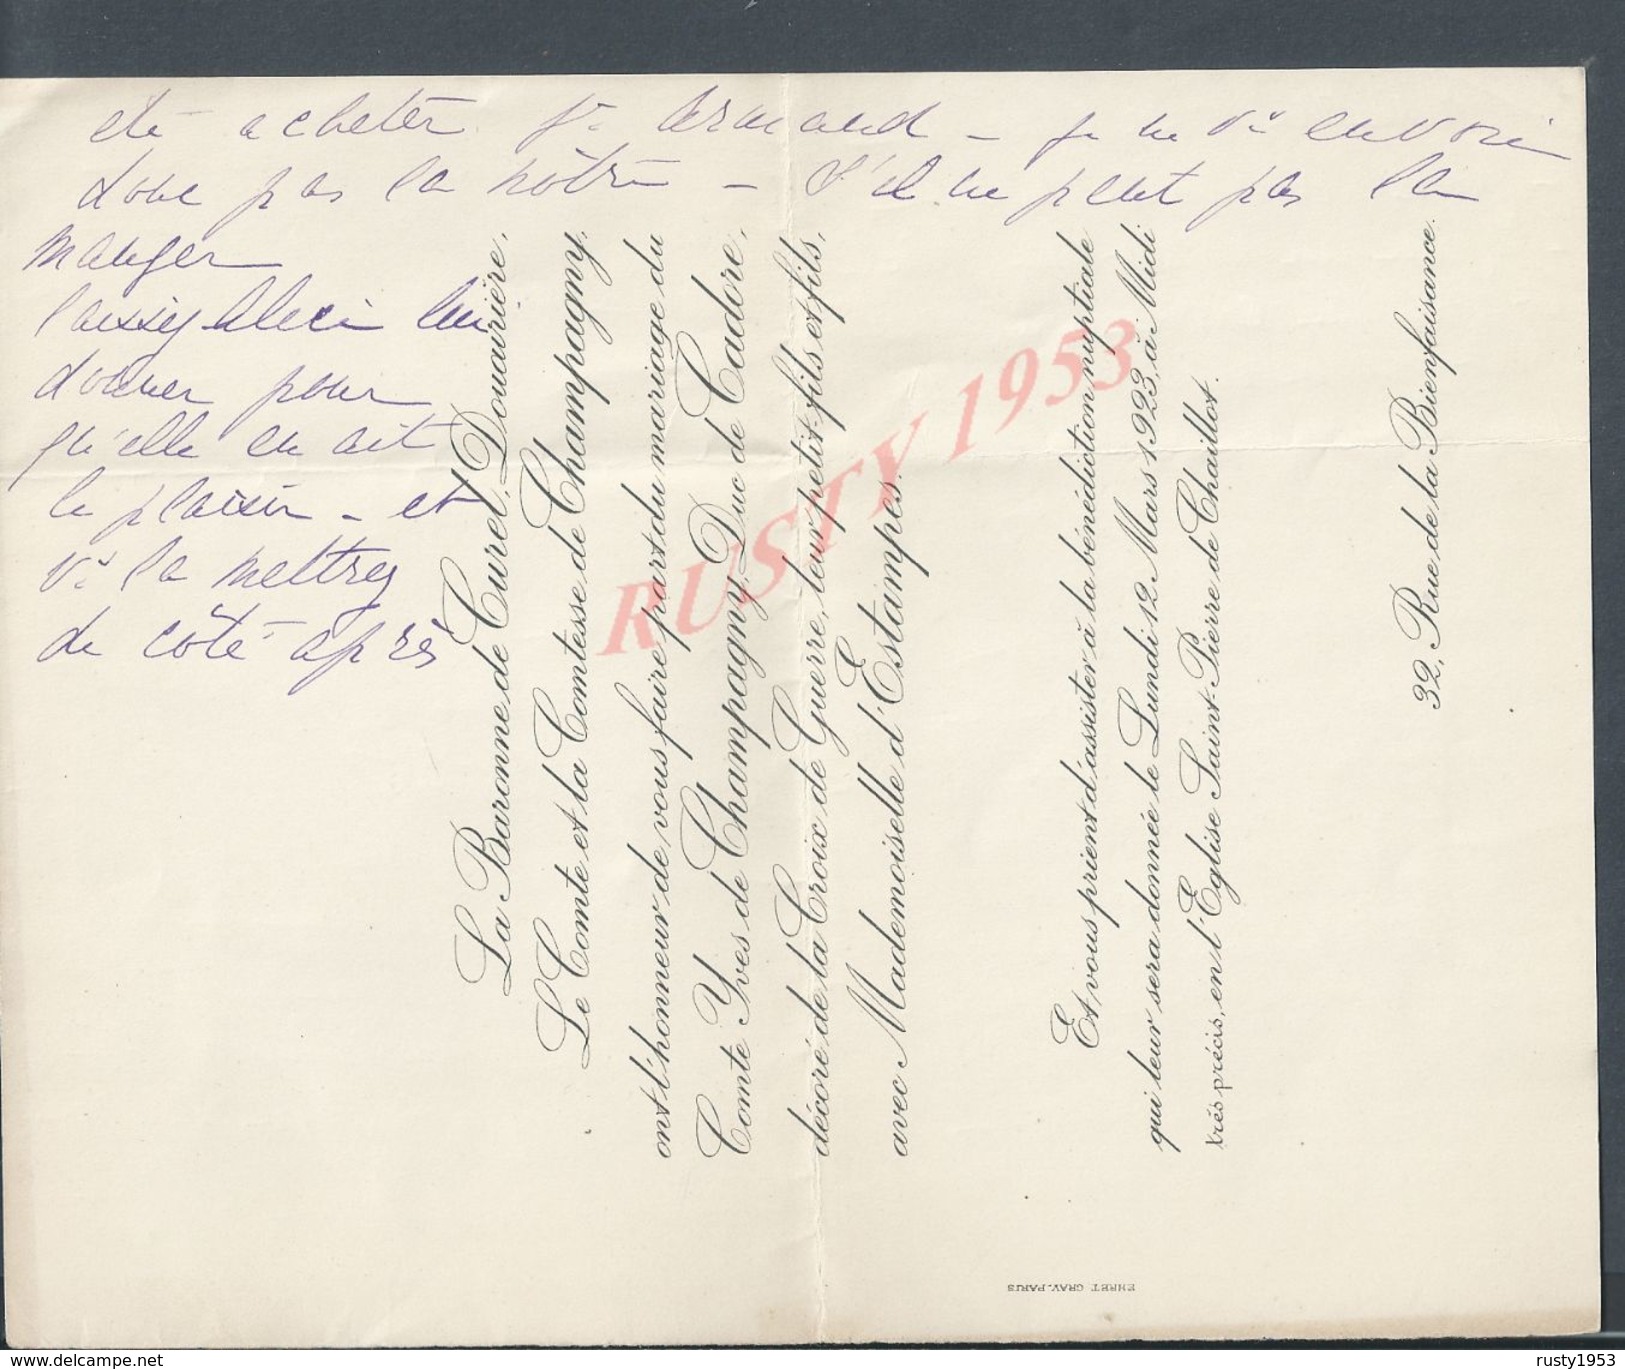 été acheter pr Armand – je ne vs envoie
donc pas la nôtre – s'il ne peut pas la
manger
laissez lui
donner pour
qu'elle en ait
le plaisir – et
vs la mettrez
de côté après
La Baronne de Curel, Douairière,
Le Comte et la Comtesse de Champagny,
ont l'honneur de vous faire part du mariage du
Comte Yves de Champagny, Duc de Cadore,
décoré de la Croix de Guerre, leur petit-fils et fils,
avec Mademoiselle d'Estampes.
Et vous prient d'assister à la bénédiction nuptiale
qui leur sera donnée le Lundi 12 Mars 1923, à Midi
très précis, en l'Eglise Saint-Pierre de Chaillot.
32, Rue de la Bienfaisance.
EHRET GRAV. PARIS
RUSTY 1953
delcampe.net
rusty1953